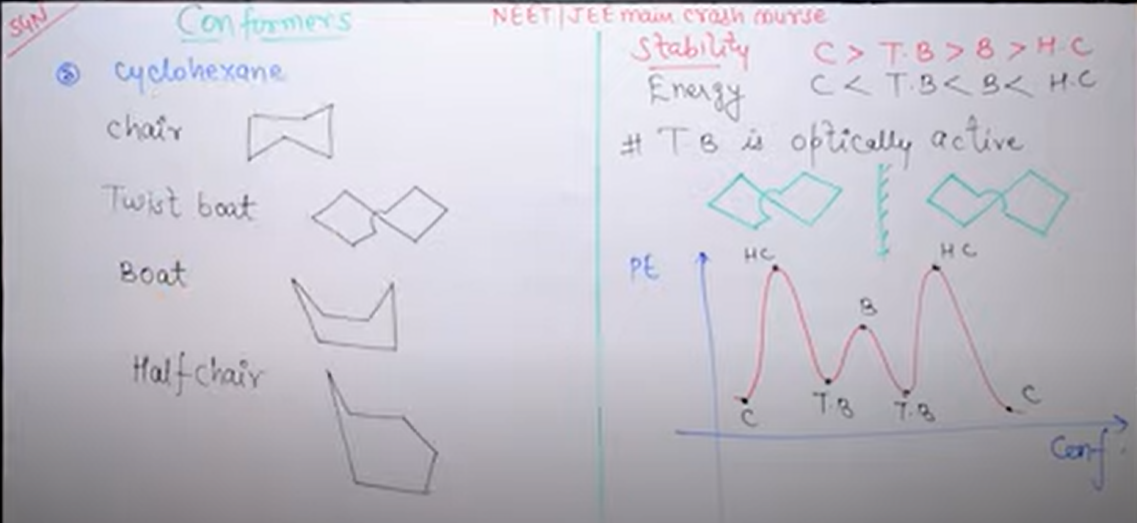 SGN
Conformers
NEET | JEE main crash course
⑧ cyclohexane
chair
Twist boat
Boat
Half chair
Stability C > T.B > B > H.C
Energy C < T.B < B < H.C
# T B is optically active
PE
HC
HC
B
C
T.B
T.B
C
Conf.